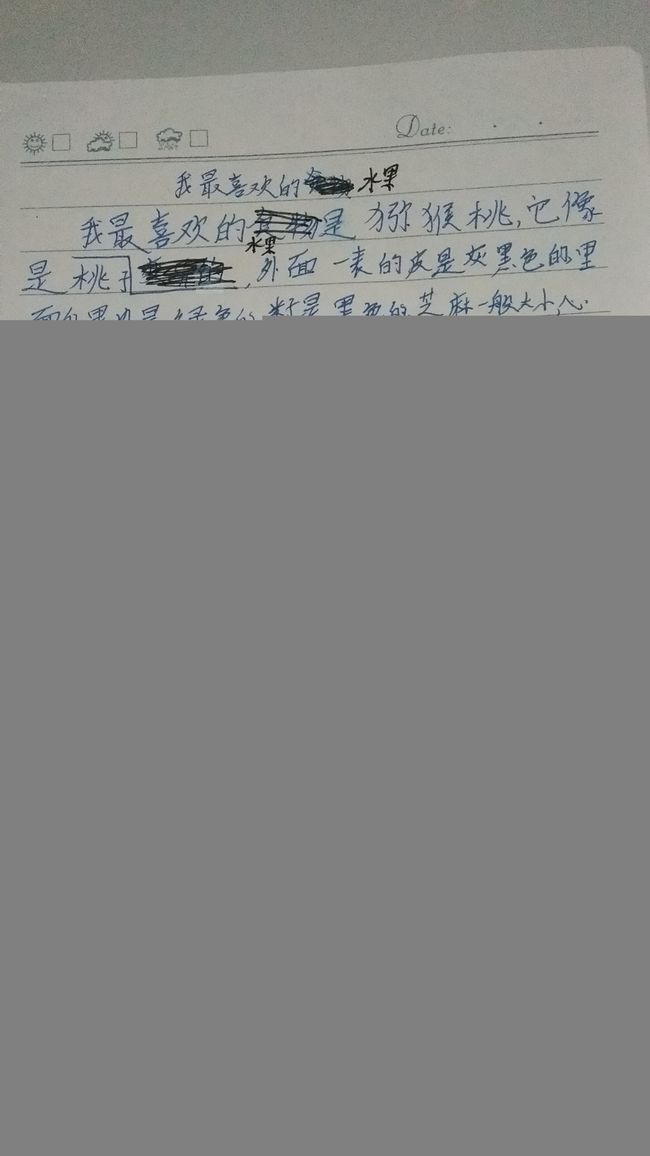 Date:
我最喜欢的水果
我最喜欢的水果是猕猴桃,它像
是桃子,外面一表的皮是灰黑色的里
面的果肉是绿色的籽是黑色的芝麻一般大小心